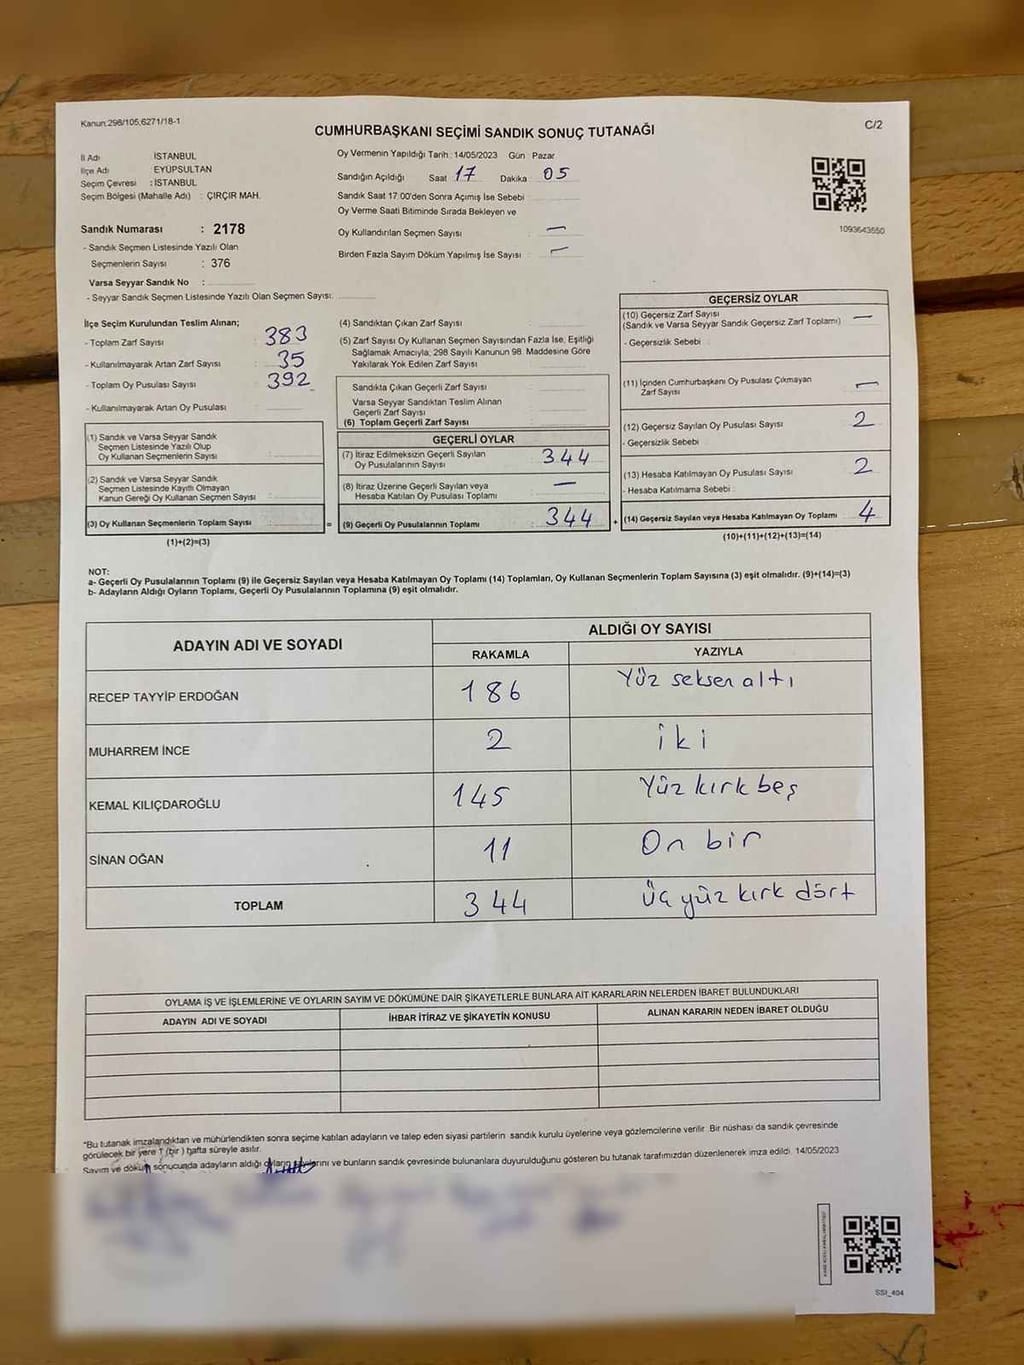 Kanun:298/105;6271/18-1
CUMHURBAŞKANI SEÇİMİ SANDIK SONUÇ TUTANAĞI
C/2
İl Adı : İSTANBUL
İlçe Adı : EYÜPSULTAN
Seçim Çevresi : İSTANBUL
Seçim Bölgesi (Mahalle Adı) : ÇIRÇIR MAH.
Sandık Numarası : 2178
- Sandık Seçmen Listesinde Yazılı Olan
Seçmenlerin Sayısı : 376
Varsa Seyyar Sandık No :
- Seyyar Sandık Seçmen Listesinde Yazılı Olan Seçmen Sayısı:
Oy Vermenin Yapıldığı Tarih: 14/05/2023 Gün : Pazar
Sandığın Açıldığı Saat 17 Dakika : 05
Sandık Saat 17:00'den Sonra Açımış İse Sebebi :
Oy Verme Saati Bitiminde Sırada Bekleyen ve
Oy Kullandırılan Seçmen Sayısı : —
Birden Fazla Sayım Döküm Yapılmış İse Sayısı : —
1093643550
İlçe Seçim Kurulundan Teslim Alınan;
- Toplam Zarf Sayısı : 383
- Kullanılmayarak Artan Zarf Sayısı : 35
- Toplam Oy Pusulası Sayısı : 392
- Kullanılmayarak Artan Oy Pusulası :
(1) Sandık ve Varsa Seyyar Sandık
Seçmen Listesinde Yazılı Olup
Oy Kullanan Seçmenlerin Sayısı :
(2) Sandık ve Varsa Seyyar Sandık
Seçmen Listesinde Kayıtlı Olmayan
Kanun Gereği Oy Kullanan Seçmen Sayısı :
(3) Oy Kullanan Seçmenlerin Toplam Sayısı :
(1)+(2)=(3)
(4) Sandıktan Çıkan Zarf Sayısı :
(5) Zarf Sayısı Oy Kullanan Seçmen Sayısından Fazla İse, Eşitliği
Sağlamak Amacıyla; 298 Sayılı Kanunun 98. Maddesine Göre
Yakılarak Yok Edilen Zarf Sayısı :
Sandıkta Çıkan Geçerli Zarf Sayısı :
Varsa Seyyar Sandıktan Teslim Alınan
Geçerli Zarf Sayısı :
(6) Toplam Geçerli Zarf Sayısı :
GEÇERLİ OYLAR
(7) İtiraz Edilmeksizin Geçerli Sayılan
Oy Pusulalarının Sayısı : 344
(8) İtiraz Üzerine Geçerli Sayılan veya
Hesaba Katılan Oy Pusulası Toplamı : —
= (9) Geçerli Oy Pusulalarının Toplamı : 344 +
GEÇERSİZ OYLAR
(10) Geçersiz Zarf Sayısı
(Sandık ve Varsa Seyyar Sandık Geçersiz Zarf Toplamı) : —
- Geçersizlik Sebebi :
(11) İçinden Cumhurbaşkanı Oy Pusulası Çıkmayan
Zarf Sayısı : —
(12) Geçersiz Sayılan Oy Pusulası Sayısı : 2
- Geçersizlik Sebebi :
(13) Hesaba Katılmayan Oy Pusulası Sayısı : 2
- Hesaba Katılmama Sebebi :
(14) Geçersiz Sayılan veya Hesaba Katılmayan Oy Toplamı : 4
(10)+(11)+(12)+(13)=(14)
NOT:
a- Geçerli Oy Pusulalarının Toplamı (9) ile Geçersiz Sayılan veya Hesaba Katılmayan Oy Toplamı (14) Toplamları, Oy Kullanan Seçmenlerin Toplam Sayısına (3) eşit olmalıdır. (9)+(14)=(3)
b- Adayların Aldığı Oyların Toplamı, Geçerli Oy Pusulalarının Toplamına (9) eşit olmalıdır.
ADAYIN ADI VE SOYADI ALDIĞI OY SAYISI
RAKAMLA YAZIYLA
RECEP TAYYİP ERDOĞAN 186 Yüz seksen altı
MUHARREM İNCE 2 iki
KEMAL KILIÇDAROĞLU 145 Yüz kırk beş
SİNAN OĞAN 11 On bir
TOPLAM 344 üç yüz kırk dört
OYLAMA İŞ VE İŞLEMLERİNE VE OYLARIN SAYIM VE DÖKÜMÜNE DAİR ŞİKAYETLERLE BUNLARA AİT KARARLARIN NELERDEN İBARET BULUNDUKLARI
ADAYIN ADI VE SOYADI İHBAR İTİRAZ VE ŞİKAYETİN KONUSU ALINAN KARARIN NEDEN İBARET OLDUĞU
*Bu tutanak imzalandıktan ve mühürlendikten sonra seçime katılan adayların ve talep eden siyasi partilerin sandık kurulu üyelerine veya gözlemcilerine verilir. Bir nüshası da sandık çevresinde
görülecek bir yere 1 (bir) hafta süreyle asılır.
Sayım ve döküm sonucunda adayların aldığı oyların sayılarını ve bunların sandık çevresinde bulunanlara duyurulduğunu gösteren bu tutanak tarafımızdan düzenlenerek imza edildi. 14/05/2023
SSI_404